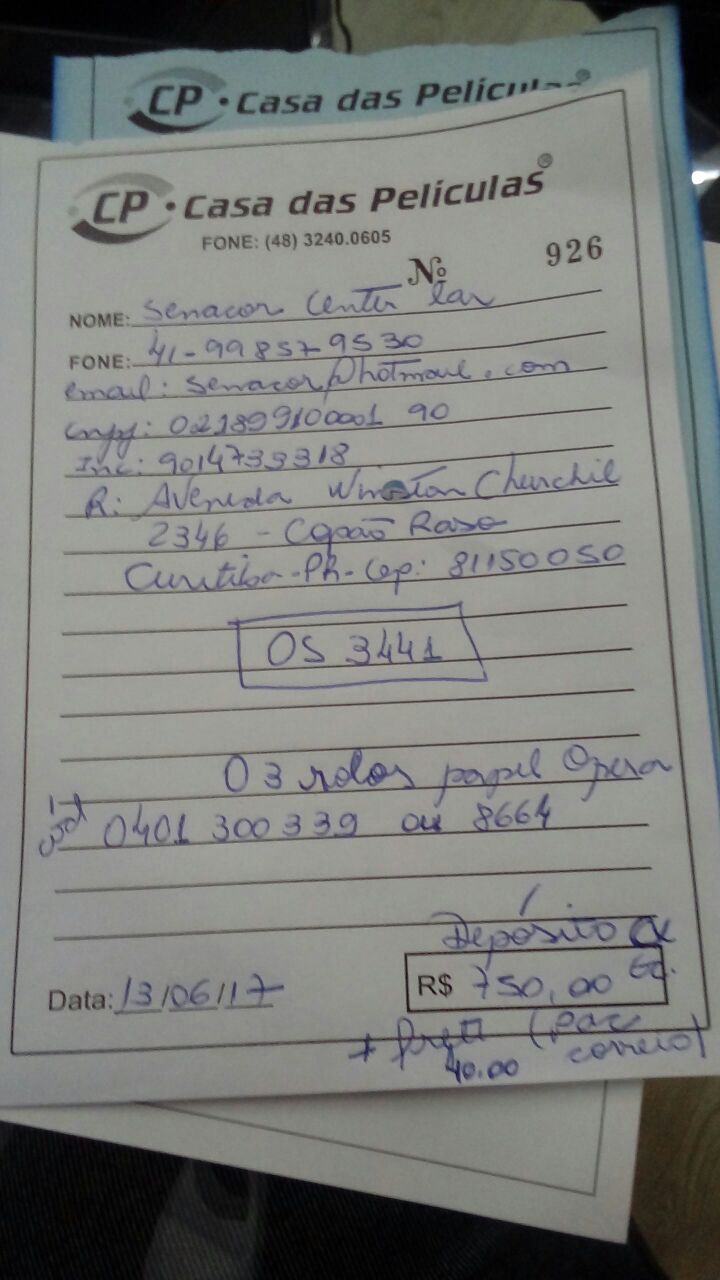 CP • Casa das Películas®
CP • Casa das Películas®
FONE: (48) 3240.0605
Nº 926
NOME: Senacor Center Lar
FONE: 41-99857-9530
email: senacor@hotmail.com
cnpj: 021899100001 90
Inc: 9014739318
R: Avenida Winston Churchil
2346 - Capão Raso
Curitiba-PR-Cep: 81150050
OS 3441
03 rolos papel Opera
cod 0401 300 339 ou 8664
Depósito
Data: 13/06/17
R$ 750,00
+ frete (pac
40.00 correio)